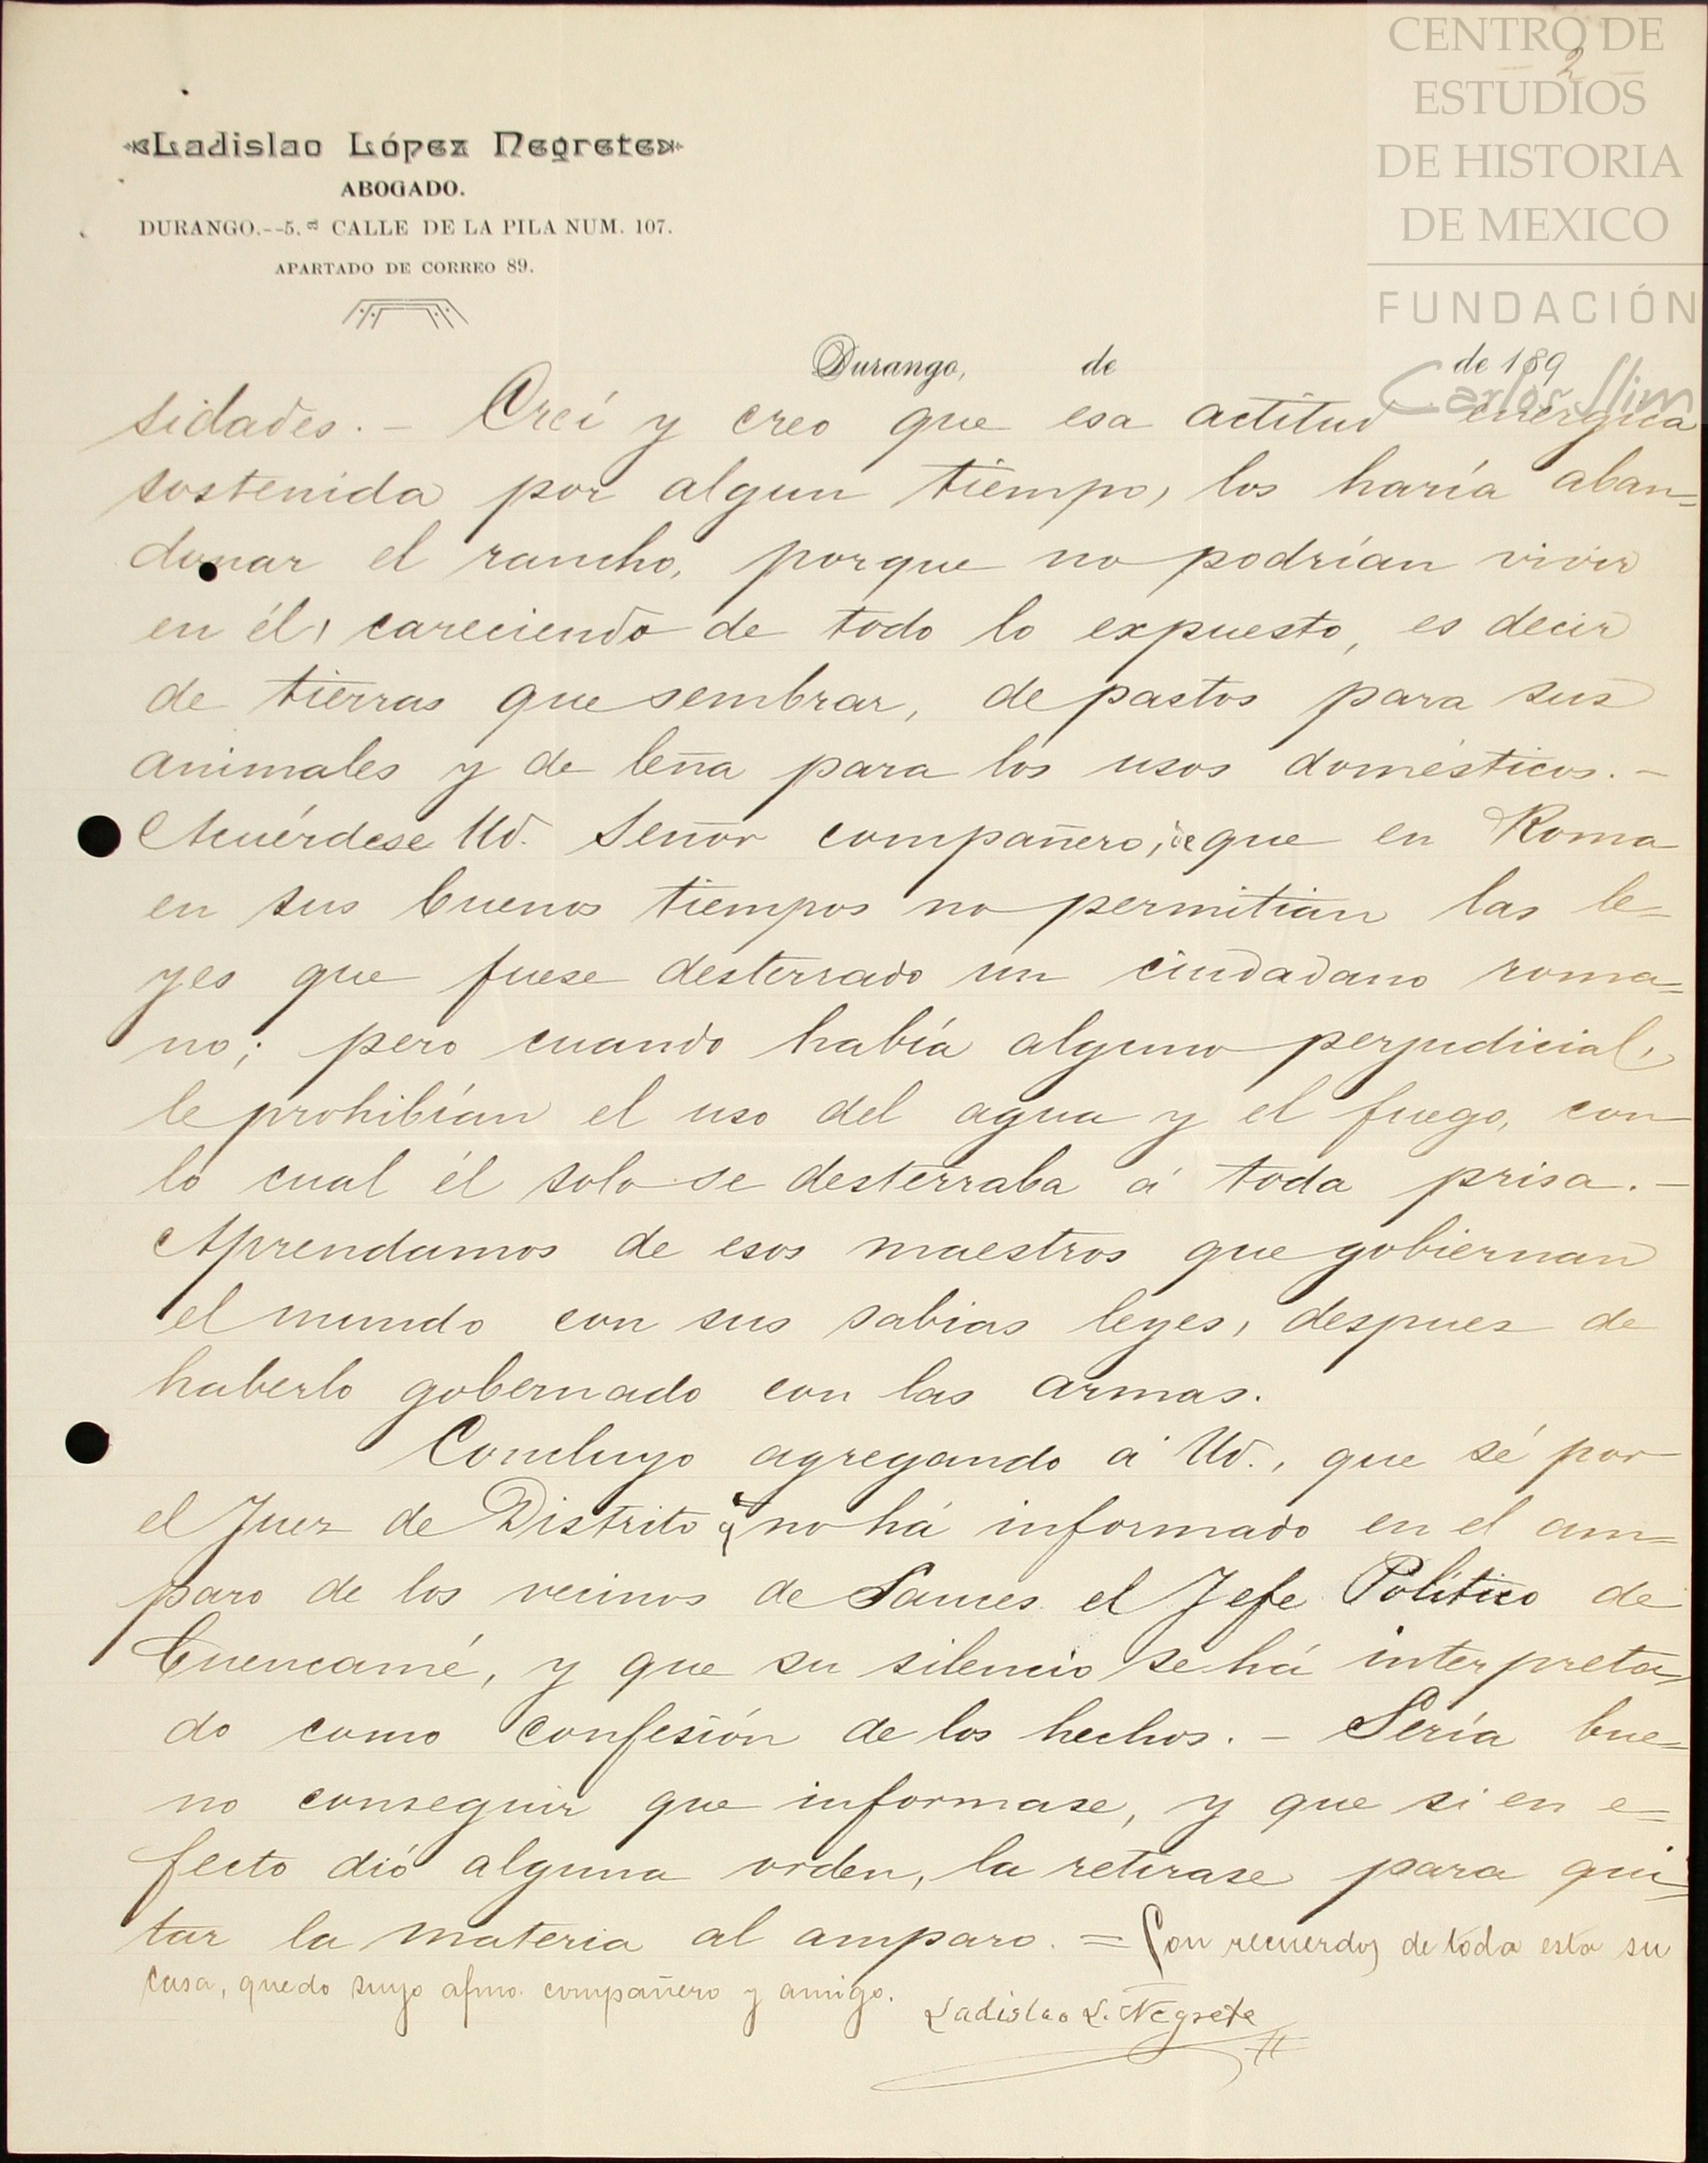 CENTRO DE
ESTUDIOS
DE HISTORIA
DE MEXICO
FUNDACIÓN
Carlos Slim
2
Ladislao López Negrete
ABOGADO.
DURANGO.--5.ª CALLE DE LA PILA NUM. 107.
APARTADO DE CORREO 89.
Durango, de de 189
sidades. - Creí y creo que esa actitud enérgica
sostenida por algun tiempo, los haría aban=
donar el rancho, porque no podrían vivir
en él, careciendo de todo lo expuesto, es decir
de tierras que sembrar, de pastos para sus
animales y de leña para los usos domésticos. -
Acuérdese Ud. Señor compañero, de que en Roma
en sus buenos tiempos no permitían las le=
yes que fuese desterrado un ciudadano roma=
no; pero cuando había alguno perjudicial,
le prohibían el uso del agua y el fuego, con
lo cual él solo se desterraba á toda prisa. -
Aprendamos de esos maestros que gobiernan
el mundo con sus sabias leyes, despues de
haberlo gobernado con las armas.
Concluyo agregando á Ud., que sé por
el Juez de Distrito q no há informado en el am=
paro de los vecinos de Sauces el Jefe Político de
Cuencamé, y que su silencio se há interpreta=
do como confesión de los hechos. - Sería bue=
no conseguir que informase, y que si en e=
fecto dió alguna orden, la retirase para qui=
tar la materia al amparo. = Con recuerdos de toda esta su
casa, quedo suyo afmo. compañero y amigo.
Ladislao L. Negrete